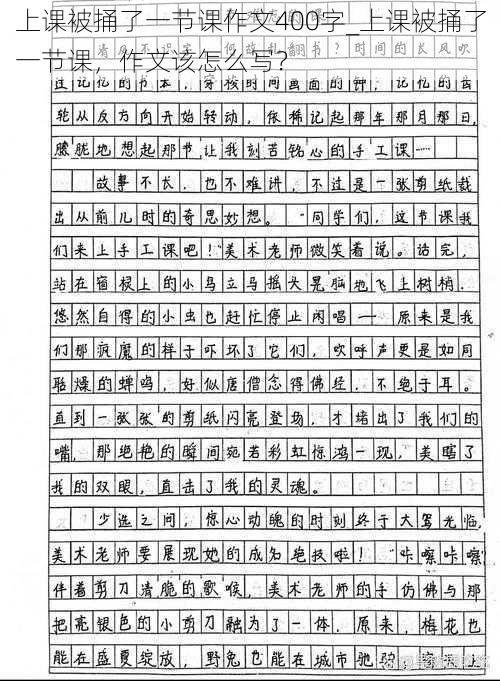 上课被捅了一节课作文400字_上课被捅了
一节课，作文该怎么写？
清风不识字，何故乱翻书？时间的长风吹
过记忆的书本，穿梭时间画面的钟，记忆的齿
轮从反方向开始转动，依稀记起那年那月那日，
朦胧地想起那节让我刻苦铭心的手工课……
故事不长，也不难讲，不过是一张剪纸裁
出从前儿时的奇思妙想。"同学们，这节课我
们来上手工课吧！"美术老师微笑着说。话完，
站在窗棂上的小鸟立马摇头晃脑地飞上树梢，
悠然自得的小虫也赶忙停止闲唱——原来是我
们那疯魔的样子吓坏了它们，欢呼声更是如同
聒燥的蝉鸣，好似唐僧念得佛经，不绝于耳。
直到一张张的剪纸闪亮登场，才堵出了我们的
嘴，那绝艳的瞬间宛若彩虹惊鸿一现，美瞎了
我的双眼，直击了我的灵魂。
少选之间，惊心动魄的时刻终于大驾光临，
美术老师要展现她的成名绝技啦！"咔嚓咔嚓"
伴着剪刀清脆的歌喉，美术老师的手仿佛与那
把亮银色的小剪刀融为了一体，原来，梅花也
能在盛夏绽放，野兔也能在城市驰骋